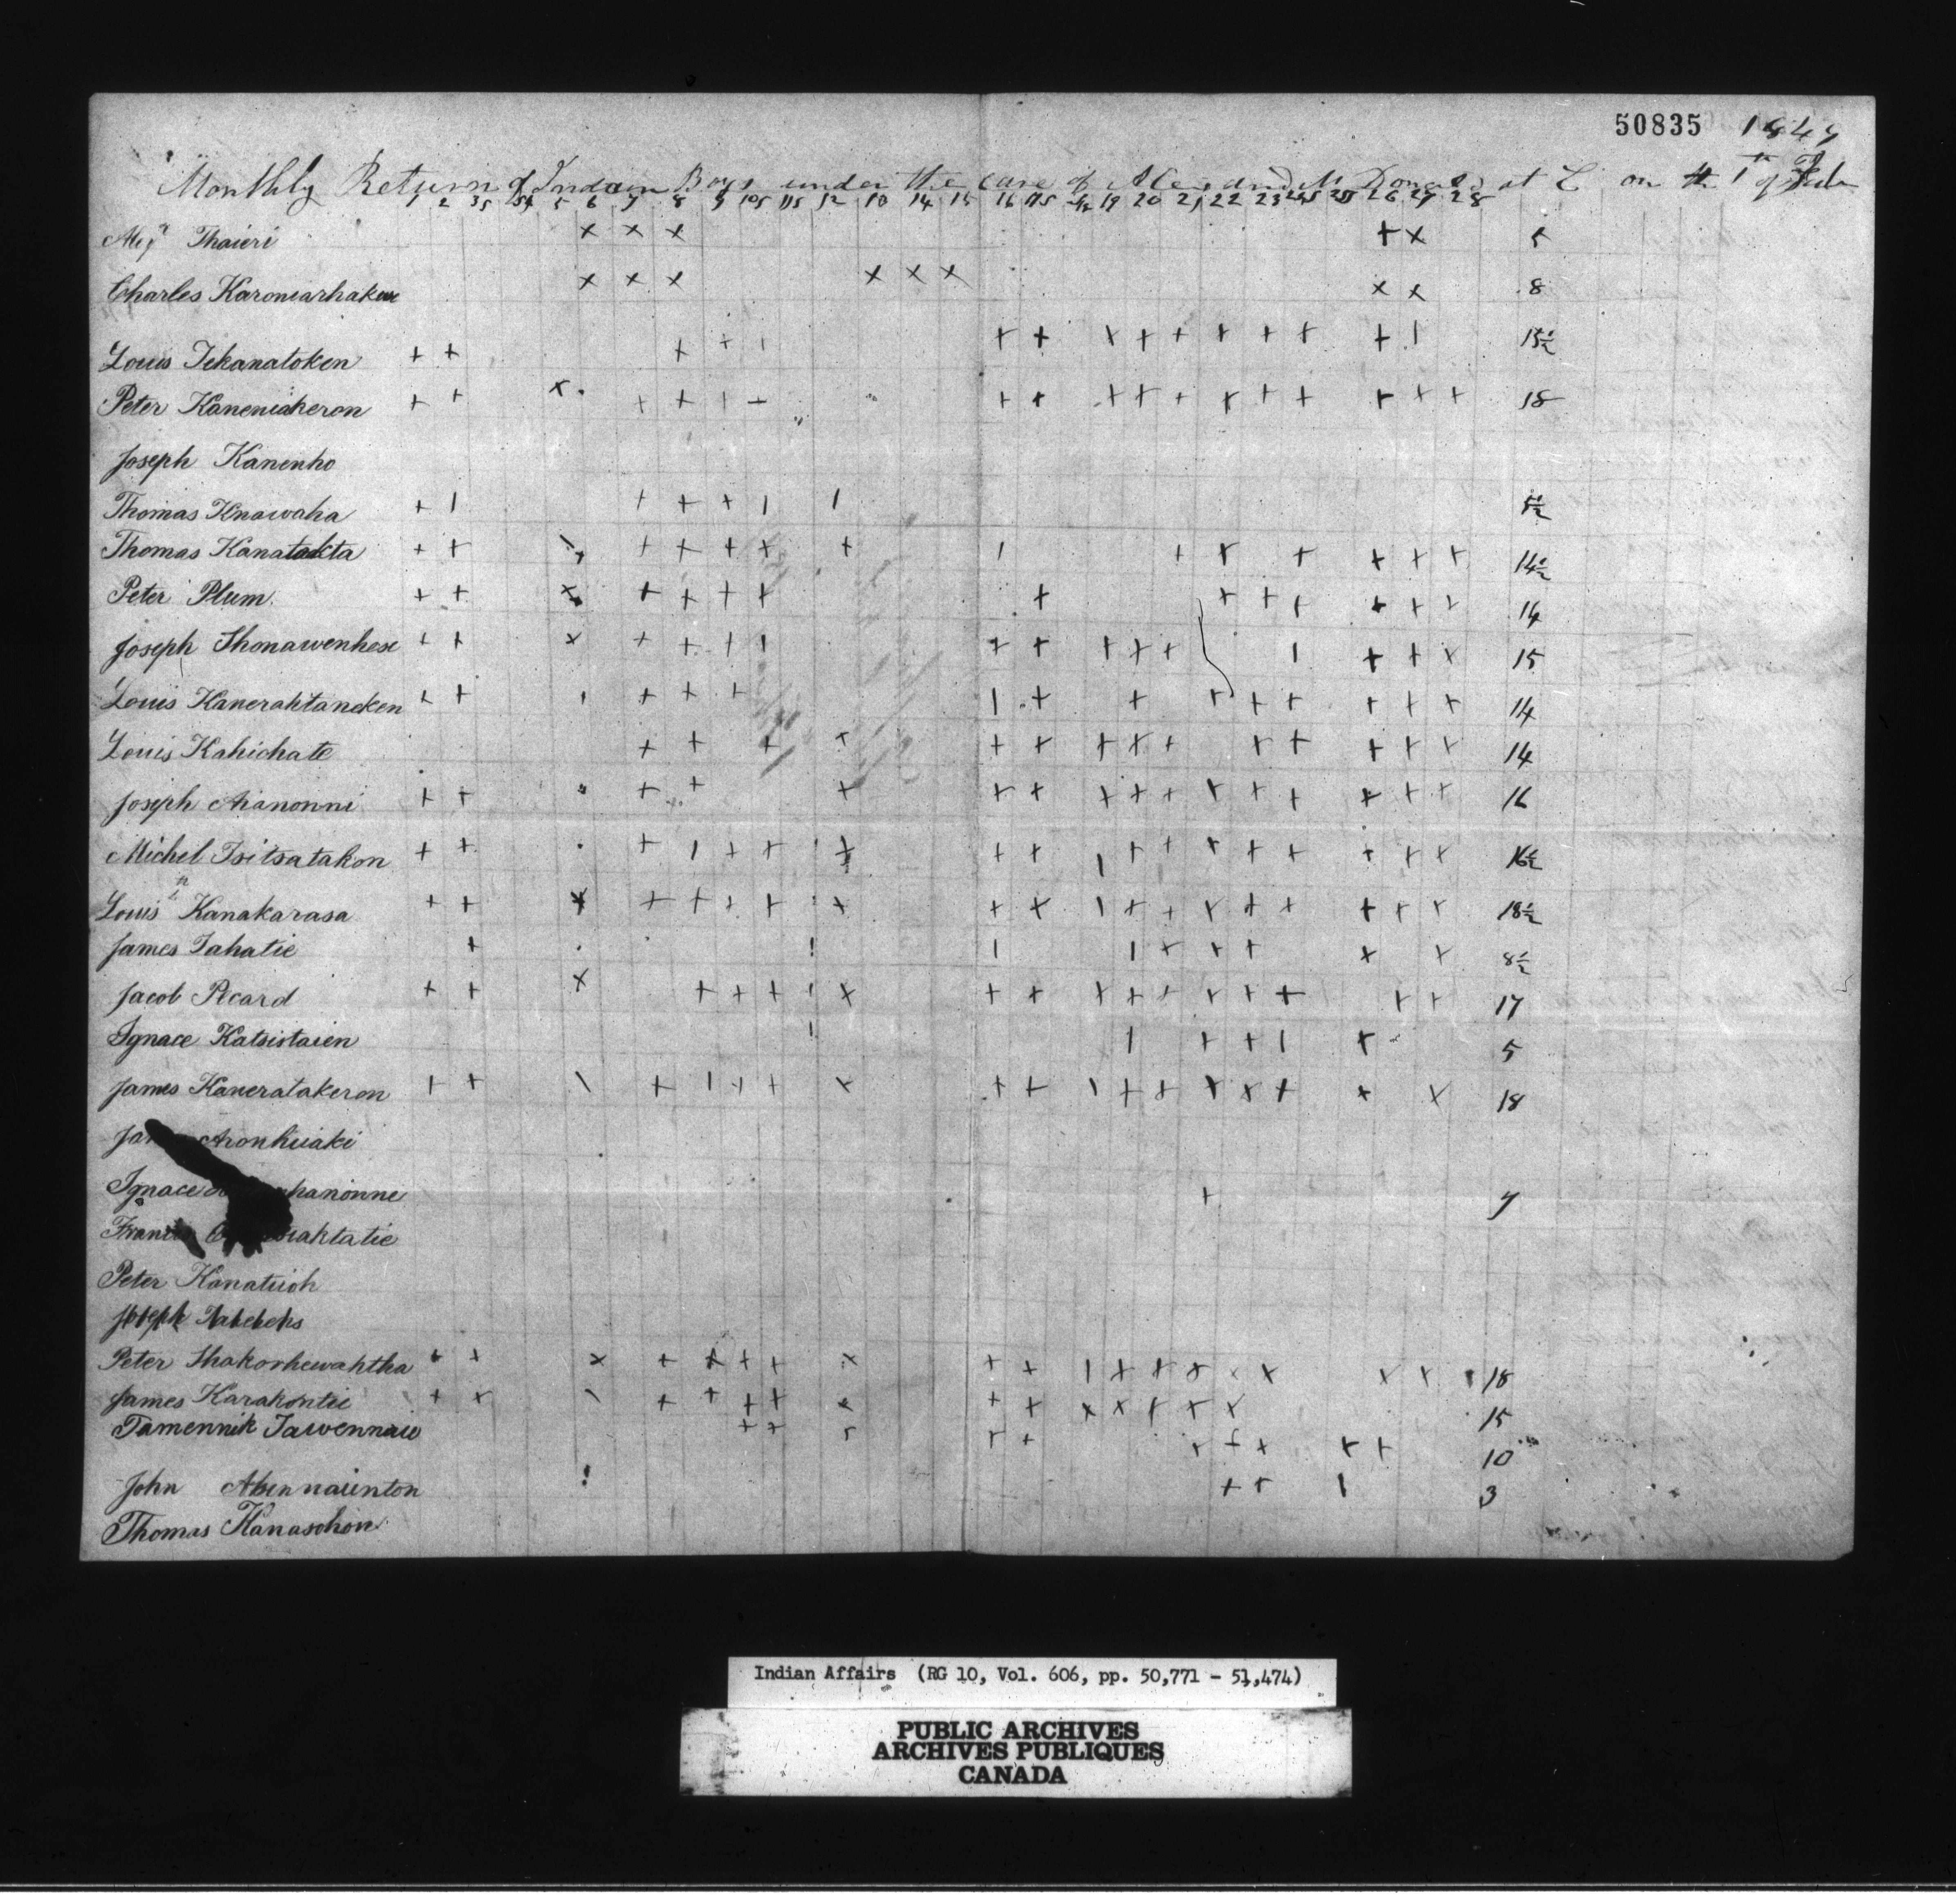 50835 1849
Monthly Return of Indain Boys under the care of Alexander Mc Donald at on the 1st of Feb
1 2 3S 4 5 6 7 8 9 10S 11S 12 13 14 15 16 17S 18 19 20 21 22 23 24S 25S 26 27 28
Thaieri x x x + x 5
Charles Karoniarhakere x x x x x x x x 8
Louis Tekanatoken + + + + 1 + + + + + + + + + 1 15 1/2
Peter Kaneniakeron + + x + + 1 + + + + + + + + + + + + 18
Joseph Kanenho
Thomas Knawaha + 1 + + + 1 1 5 1/2
Thomas Kanatakta + + \ + + + + + 1 + + + + + + 14 1/2
Peter Plum + + x + + + + + + + + + + + 14
Joseph Thonawenhese + + x + + 1 1 + + + + + 1 + + x 15
Louis Kanerahtaneken + + + + + 1 + + + + + + + + 14
Louis Kahichate + + + + + + + + + + + + + + 14
Joseph Aianonni + + + + + + + + + + + + + + + + 16
Michel Tsitsatakon + + + 1 + + + + + 1 + + + + + + + + 16 1/2
Louis Kanakarasa + + x + + + + + + + 1 + + + + + + + + 18 1/2
James Tahatie + 1 1 1 + + + x + 8 1/2
Jacob Picard + + x + + + 1 x + + + + + + + + + + 17
Ignace Katsistaien 1 1 + + 1 + 5
James Kaneratakeron + + \ + 1 + + x + + 1 + + + x + x x 18
Ja Aronhiiaki
Ignace hanonne +
Francis iaktatie
Peter Kanatiioh
Joseph
Peter Shakorhewahtha + + x + + + + x + + 1 + + + x x x x 18
James Karakontie + + \ + + + + + + + x x + + x 15
Tamennik Tawennaie + + + + + + + + + 10
John ! + + 1 3
Thomas Kanaschon
Indian Affairs (RG 10, Vol. 606, pp. 50,771 - 51,474)
PUBLIC ARCHIVES
ARCHIVES PUBLIQUES
CANADA